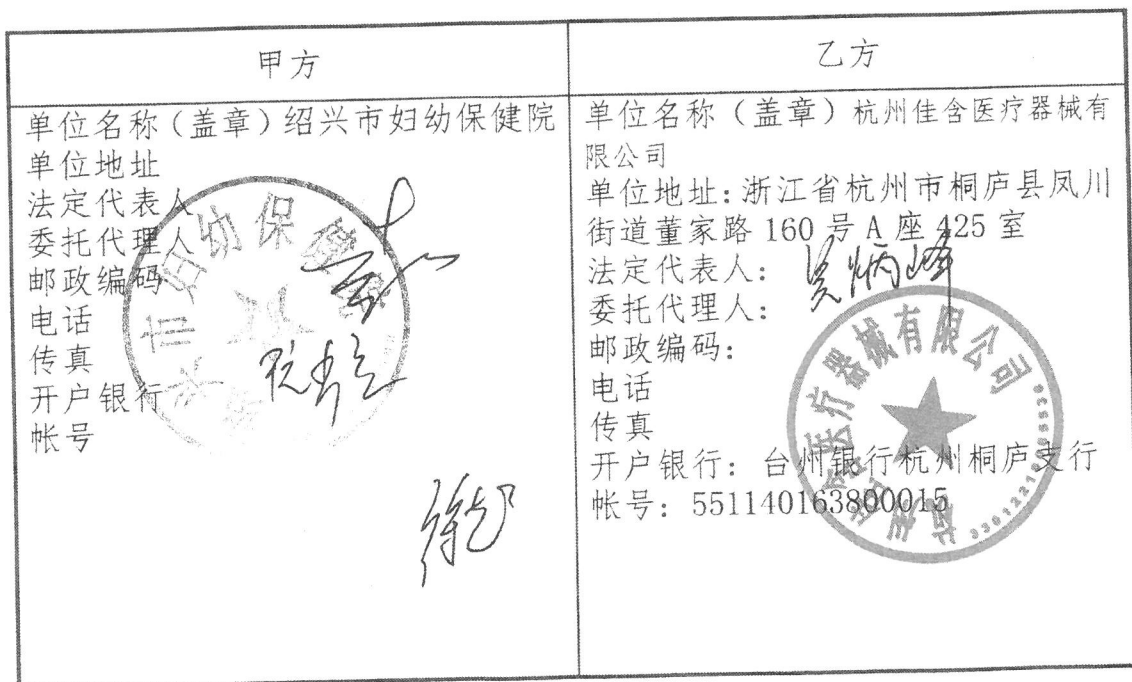 甲方
单位名称（盖章）绍兴市妇幼保健院
单位地址
法定代表人
委托代理人
邮政编码
电话
传真
开户银行
帐号
乙方
单位名称（盖章）杭州佳含医疗器械有
限公司
单位地址：浙江省杭州市桐庐县凤川
街道董家路 160 号 A 座 425 室
法定代表人：吴炳峰
委托代理人：
邮政编码：
电话
传真
开户银行：台州银行杭州桐庐支行
帐号：551140163800015
市妇幼保健院
杭州佳含医疗器械有限公司